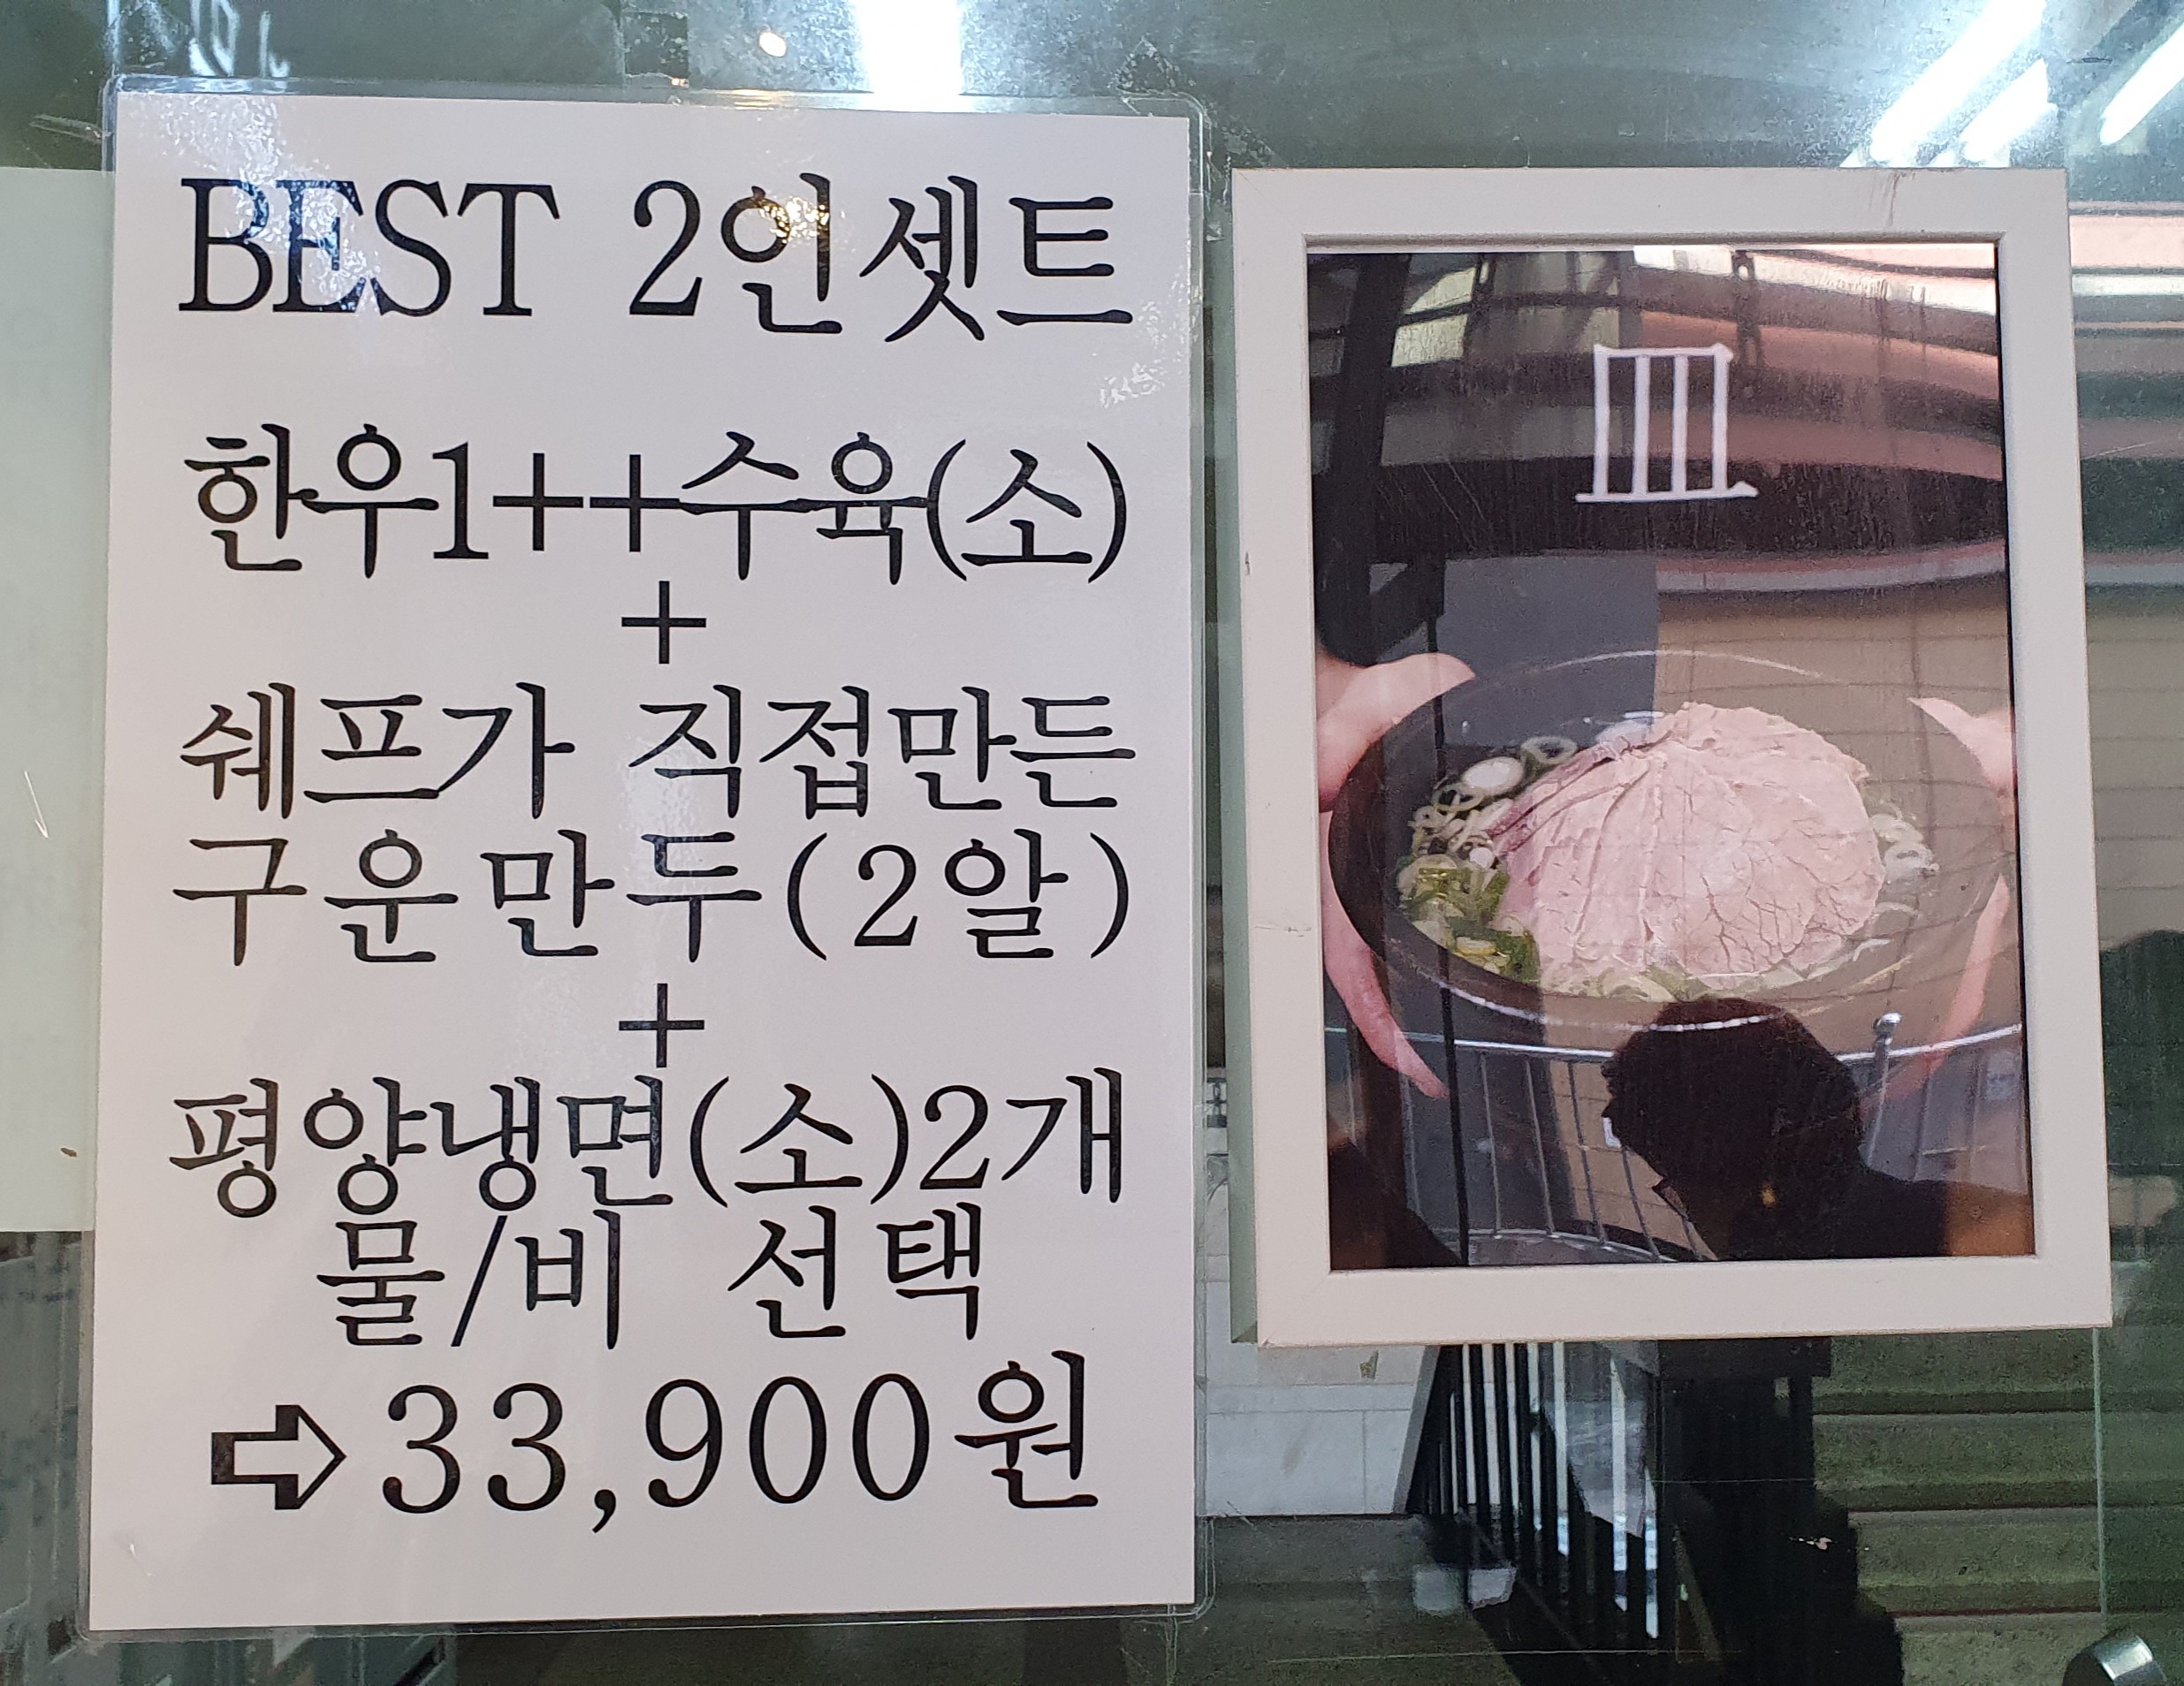 BEST 2인셋트
한우1++수육(소)
+
쉐프가 직접만든
구운만두(2알)
+
평양냉면(소)2개
물/비 선택
⇨33,900원
皿